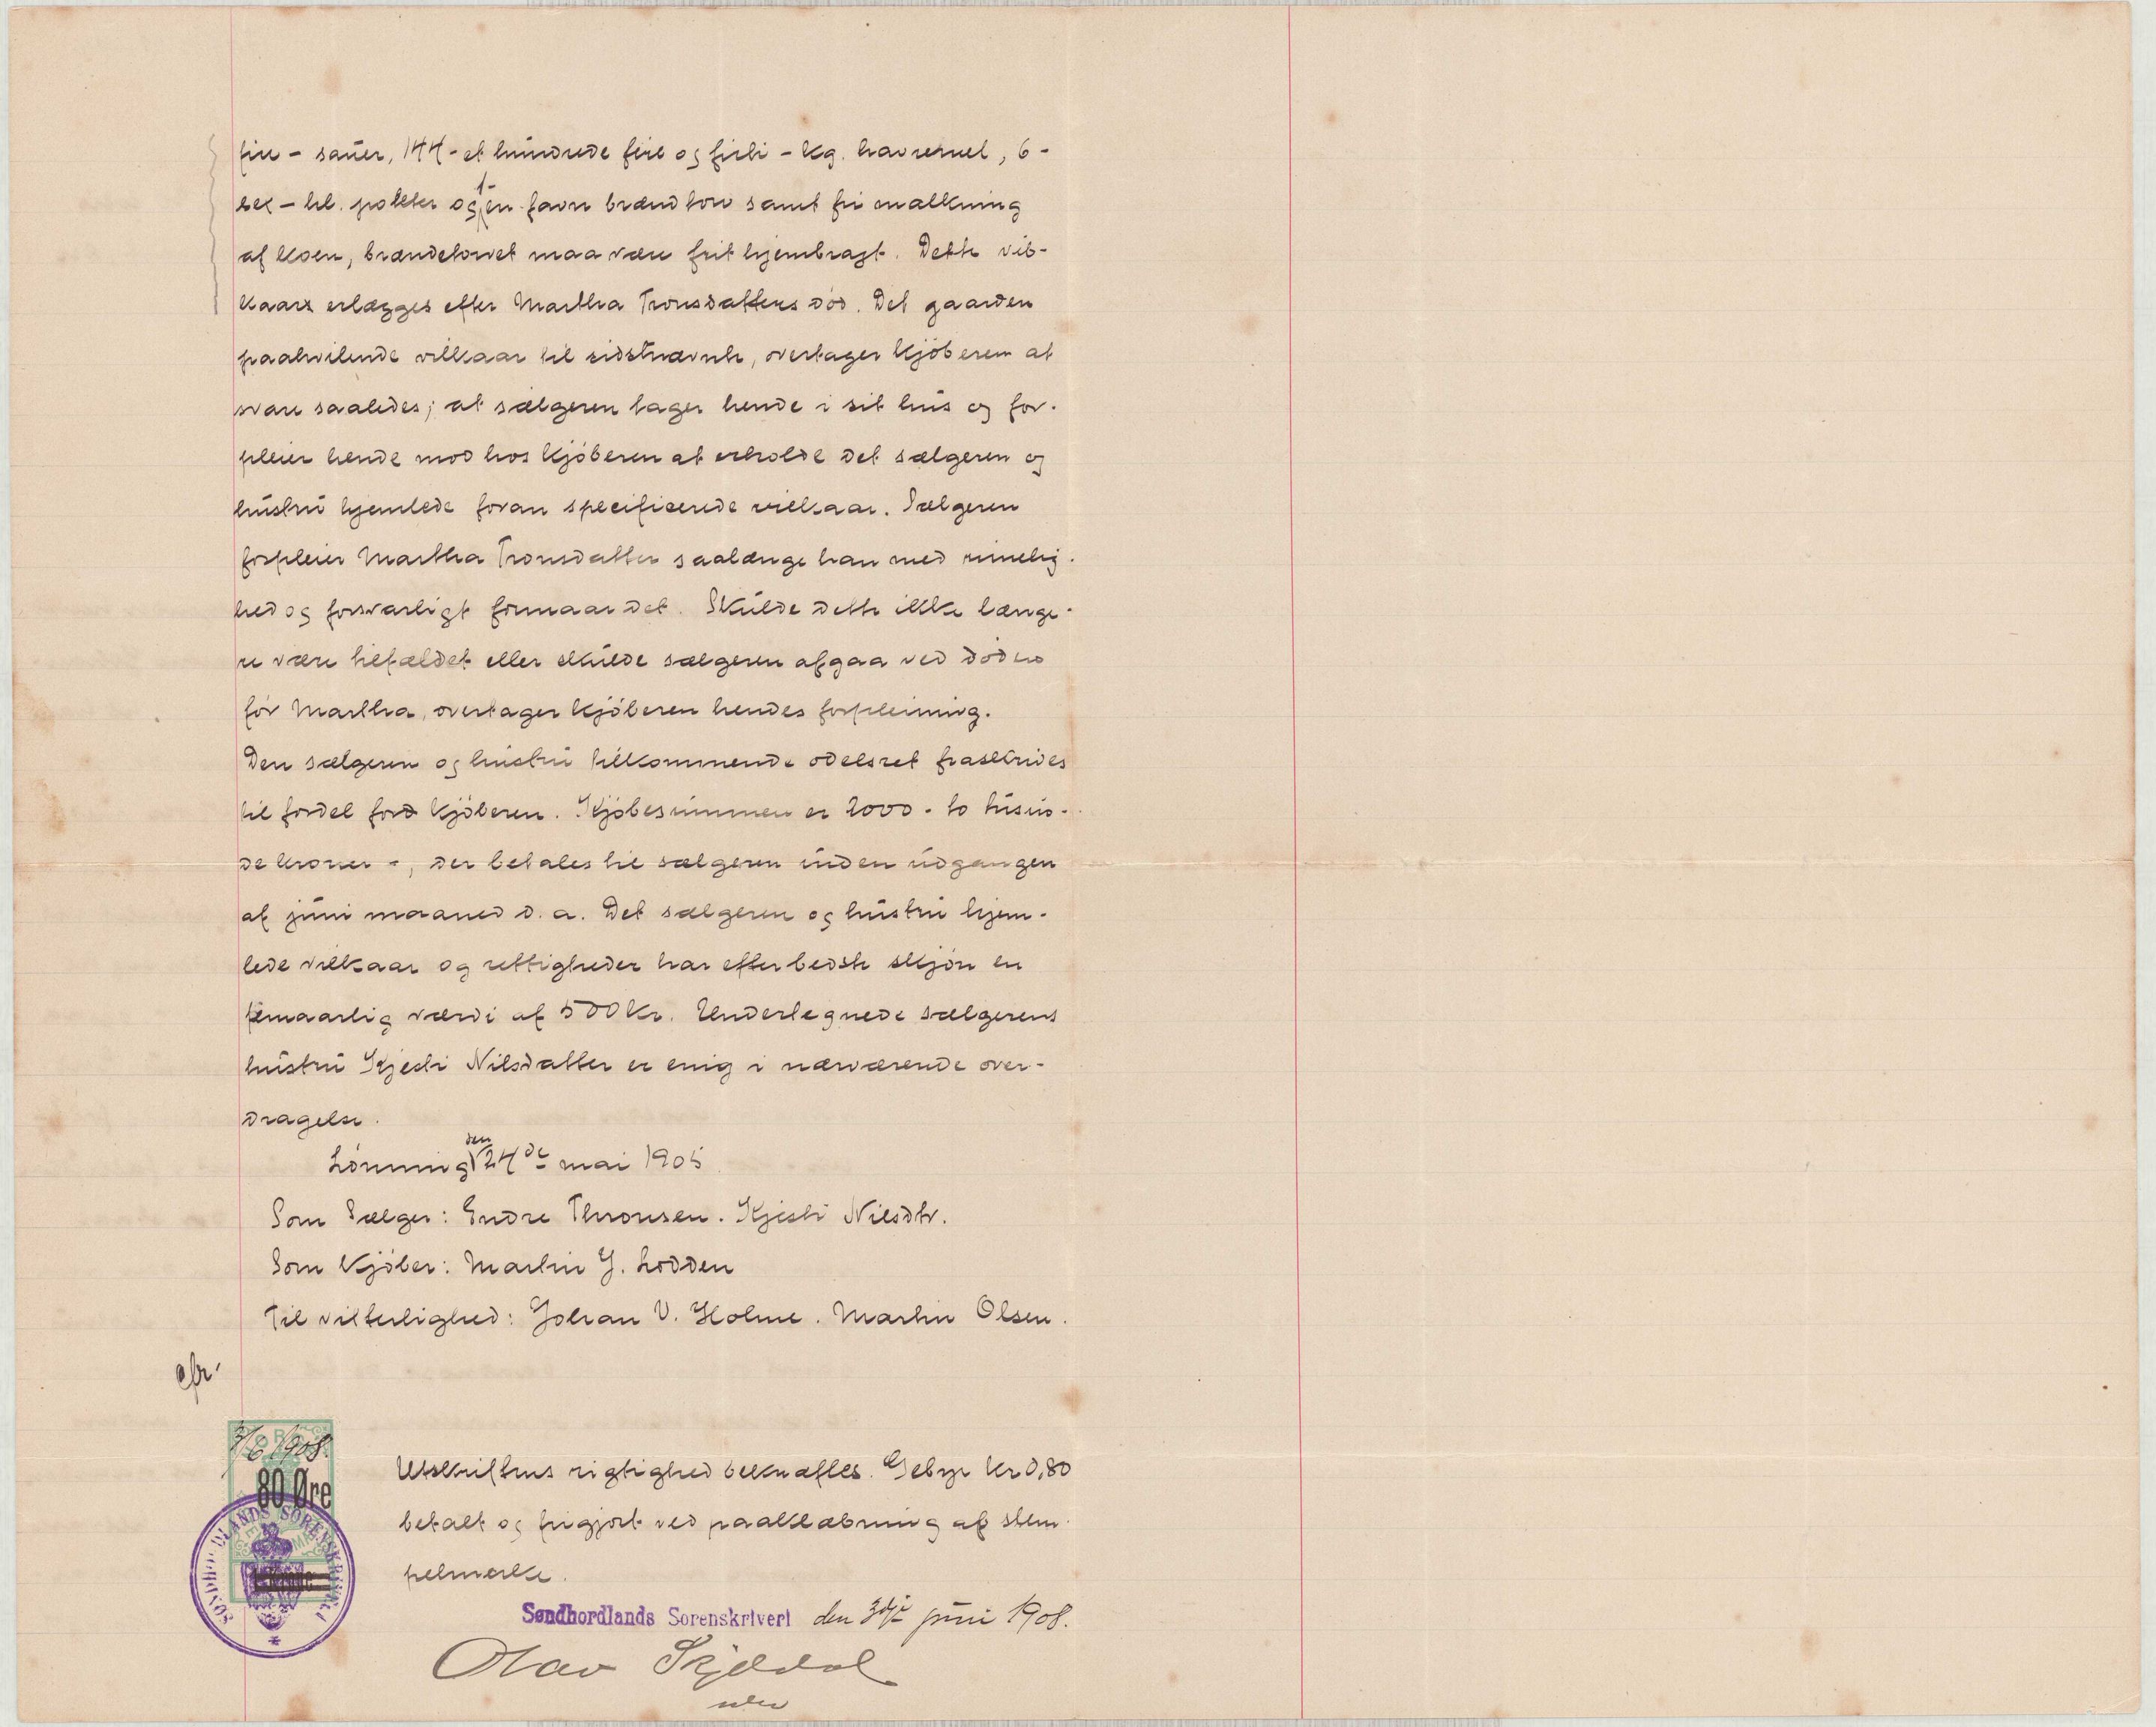 fire - sauer, 144 - et hundrede fire og firti - kg. havremel, 6 -
sex - hl. poteter og 1- en favn brændtorv samt fri malkning
af koen, brændetorvet maa være frit hjembragt. Dette vil-
kaar erlægges efter Martha Tronsdatters død. Det gaarden
paahvilende villkaar til sidstnævnte, overtager kjøberen at
svare saaledes; at sælgeren tager hende i sit hus og for-
pleier hende mod hos kjøberen at erholde det sælgeren og
hustru hjemlede foran specificerede villkaar. Sælgeren
forpleier Martha Tronsdatter saalænge han med rimelig-
hed og forsvarligt formaar det. Skulde dette ikke længe-
re være tilfældet eller skulde sælgeren afgaa ved døden
før Martha, overtager kjøberen hendes forpleining.
Den sælgeren og hustru tilkommende odelsret fraskrides
til fordel for kjøberen. Kjøbesummen er 2000 - to tusin-
de kroner -, der betales til sælgeren inden udgangen
af juni maaned d. a. Det sælgeren og hustru hjem-
lede villkaar og rettigheder har efter bedste skjøn en
femaarlig værdi af 500 Kr. Undertegnede sælgerens
hustru Kjesti Nilsdatter er enig i nærværende over-
dragelse.
Lønning den 24de mai 1905
Som Sælger: Endre Thronsen. Kjesti Nilsdtr.
Som Kjøber: Martin G. Lodden
Til vitterlighed: Johan V. Holme. Martin Olsen.
cfr.
3/6 1908.
80 Øre
SØNDHORDLANDS SORENSKRIVERI
Utskriftens rigtighed bekræftes. Gebyr kr 0,80
betalt og frigjort ved paaklæbning af stem-
pelmerke.
Søndhordlands Sorenskriveri den 3dje juni 1908.
Olav Skjeldal